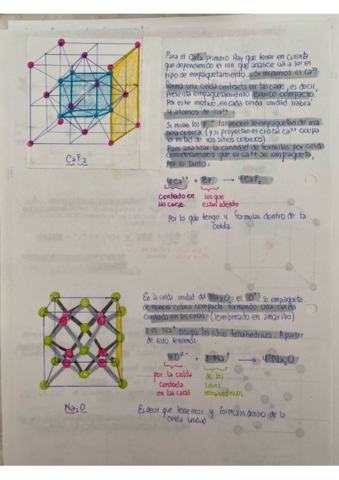 Para el CaF₂ primero hay que tener en cuenta
que dependiendo el ion que analice va a ser el
tipo de empaquetamiento. Si miramos el Ca²⁺
forma una celda centrada en las caras, es decir,
presenta empaquetamiento cúbico compacto.
Por este motivo, en cada celda unidad habrá
4 átomos de Ca²⁺.
Si miro los F⁻ los veo se empaquetan de ma
nera cúbica (ya proyectan el cristal Ca²⁺ ocupa
la mitad de los sitios cúbicos)
Para analizar la cantidad de fórmulas por celda
consideramos que el Ca²⁺ se empaqueta,
Por lo tanto.
CaF₂
4 Ca²⁺ 8F⁻ → 4CaF₂
centrado en los que
las caras están adentro
Por lo que tengo 4 fórmulas dentro de la
celda.
En la celda unidad del Na₂O, el O²⁻ se empaqueta
de manera cúbica compacta formando una celda
centrada en las caras (sombreado en amarillo)
y el Na⁺ ocupa los sitios tetrahédricos. A partir
de esto tenemos:
4 O²⁻ 8 Na⁺ → 4 Na₂O
por la celda de los
centrada sitios
en las caras tetrahédricos
Na₂O
Es decir que tenemos 4 fórmulas dentro de la
celda unidad